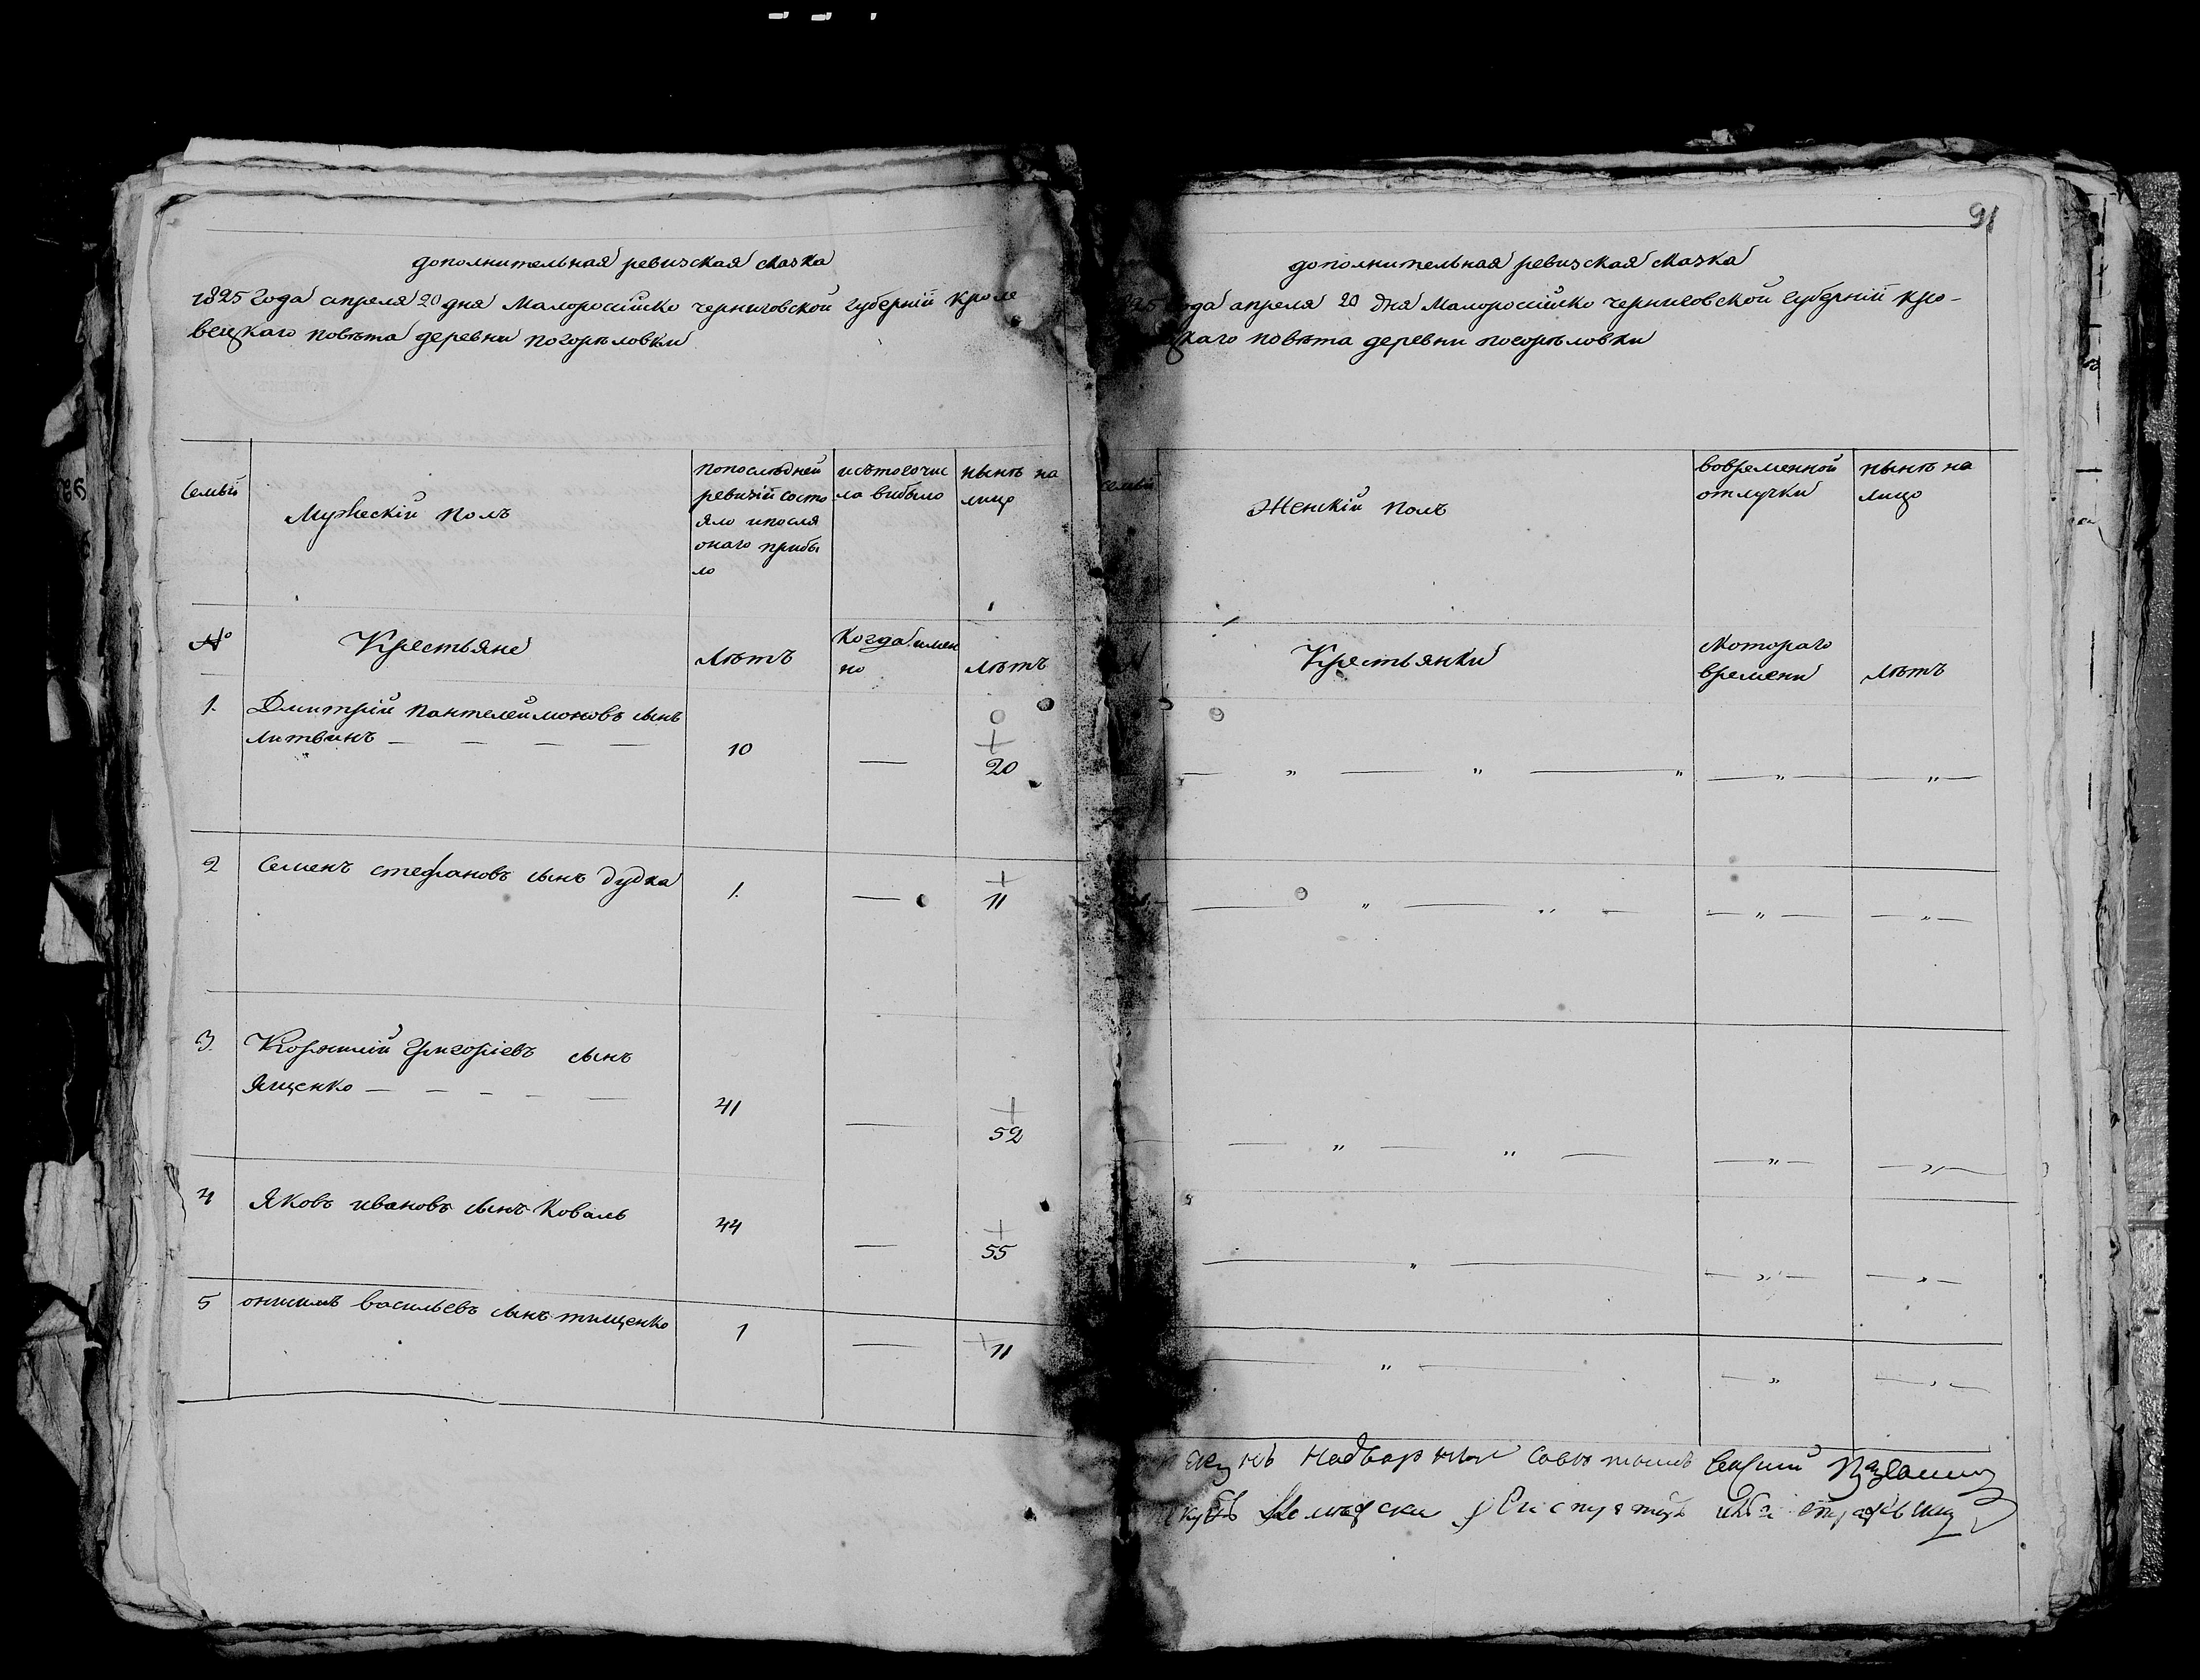 дополнительная ревизская сказка
1825 года апреля 20 дня Малоросийско черниговской губернїи кроле
вецкаго повѣта деревни погорѣловки
семьи
Мужескїй полъ
попослѣдней
ревизїи состо
яло ипосля
онаго прибы
ло
исътогочис
ла вибыло
нынѣ на
лицо
№
Крестьяне
лѣтъ
когда имен
но
лѣтъ
1. Дмитрїй пантелеймоновъ сынъ
литвинъ — — — — 10 — 20
2 Семенъ стефановъ сынъ дудка 1. — 11
3. Корнилїй григорїевъ сынъ
Ященко — — — — — 41 — 52
4 Яковъ ивановъ сынъ коваль 44 — 55
5 онисимъ васильевъ сынъ тищенко 1 — 11
91
дополнительная ревизская сказка
года апреля 20 дня Малоросийско черниговской губернїи кро-
цкаго повѣта деревни погорѣловки
семьи
Женскїй полъ
вовременной
отлучки
нынѣ на
лицо
Крестьянки
скотораго
времени
лѣтъ
надворный советникъ